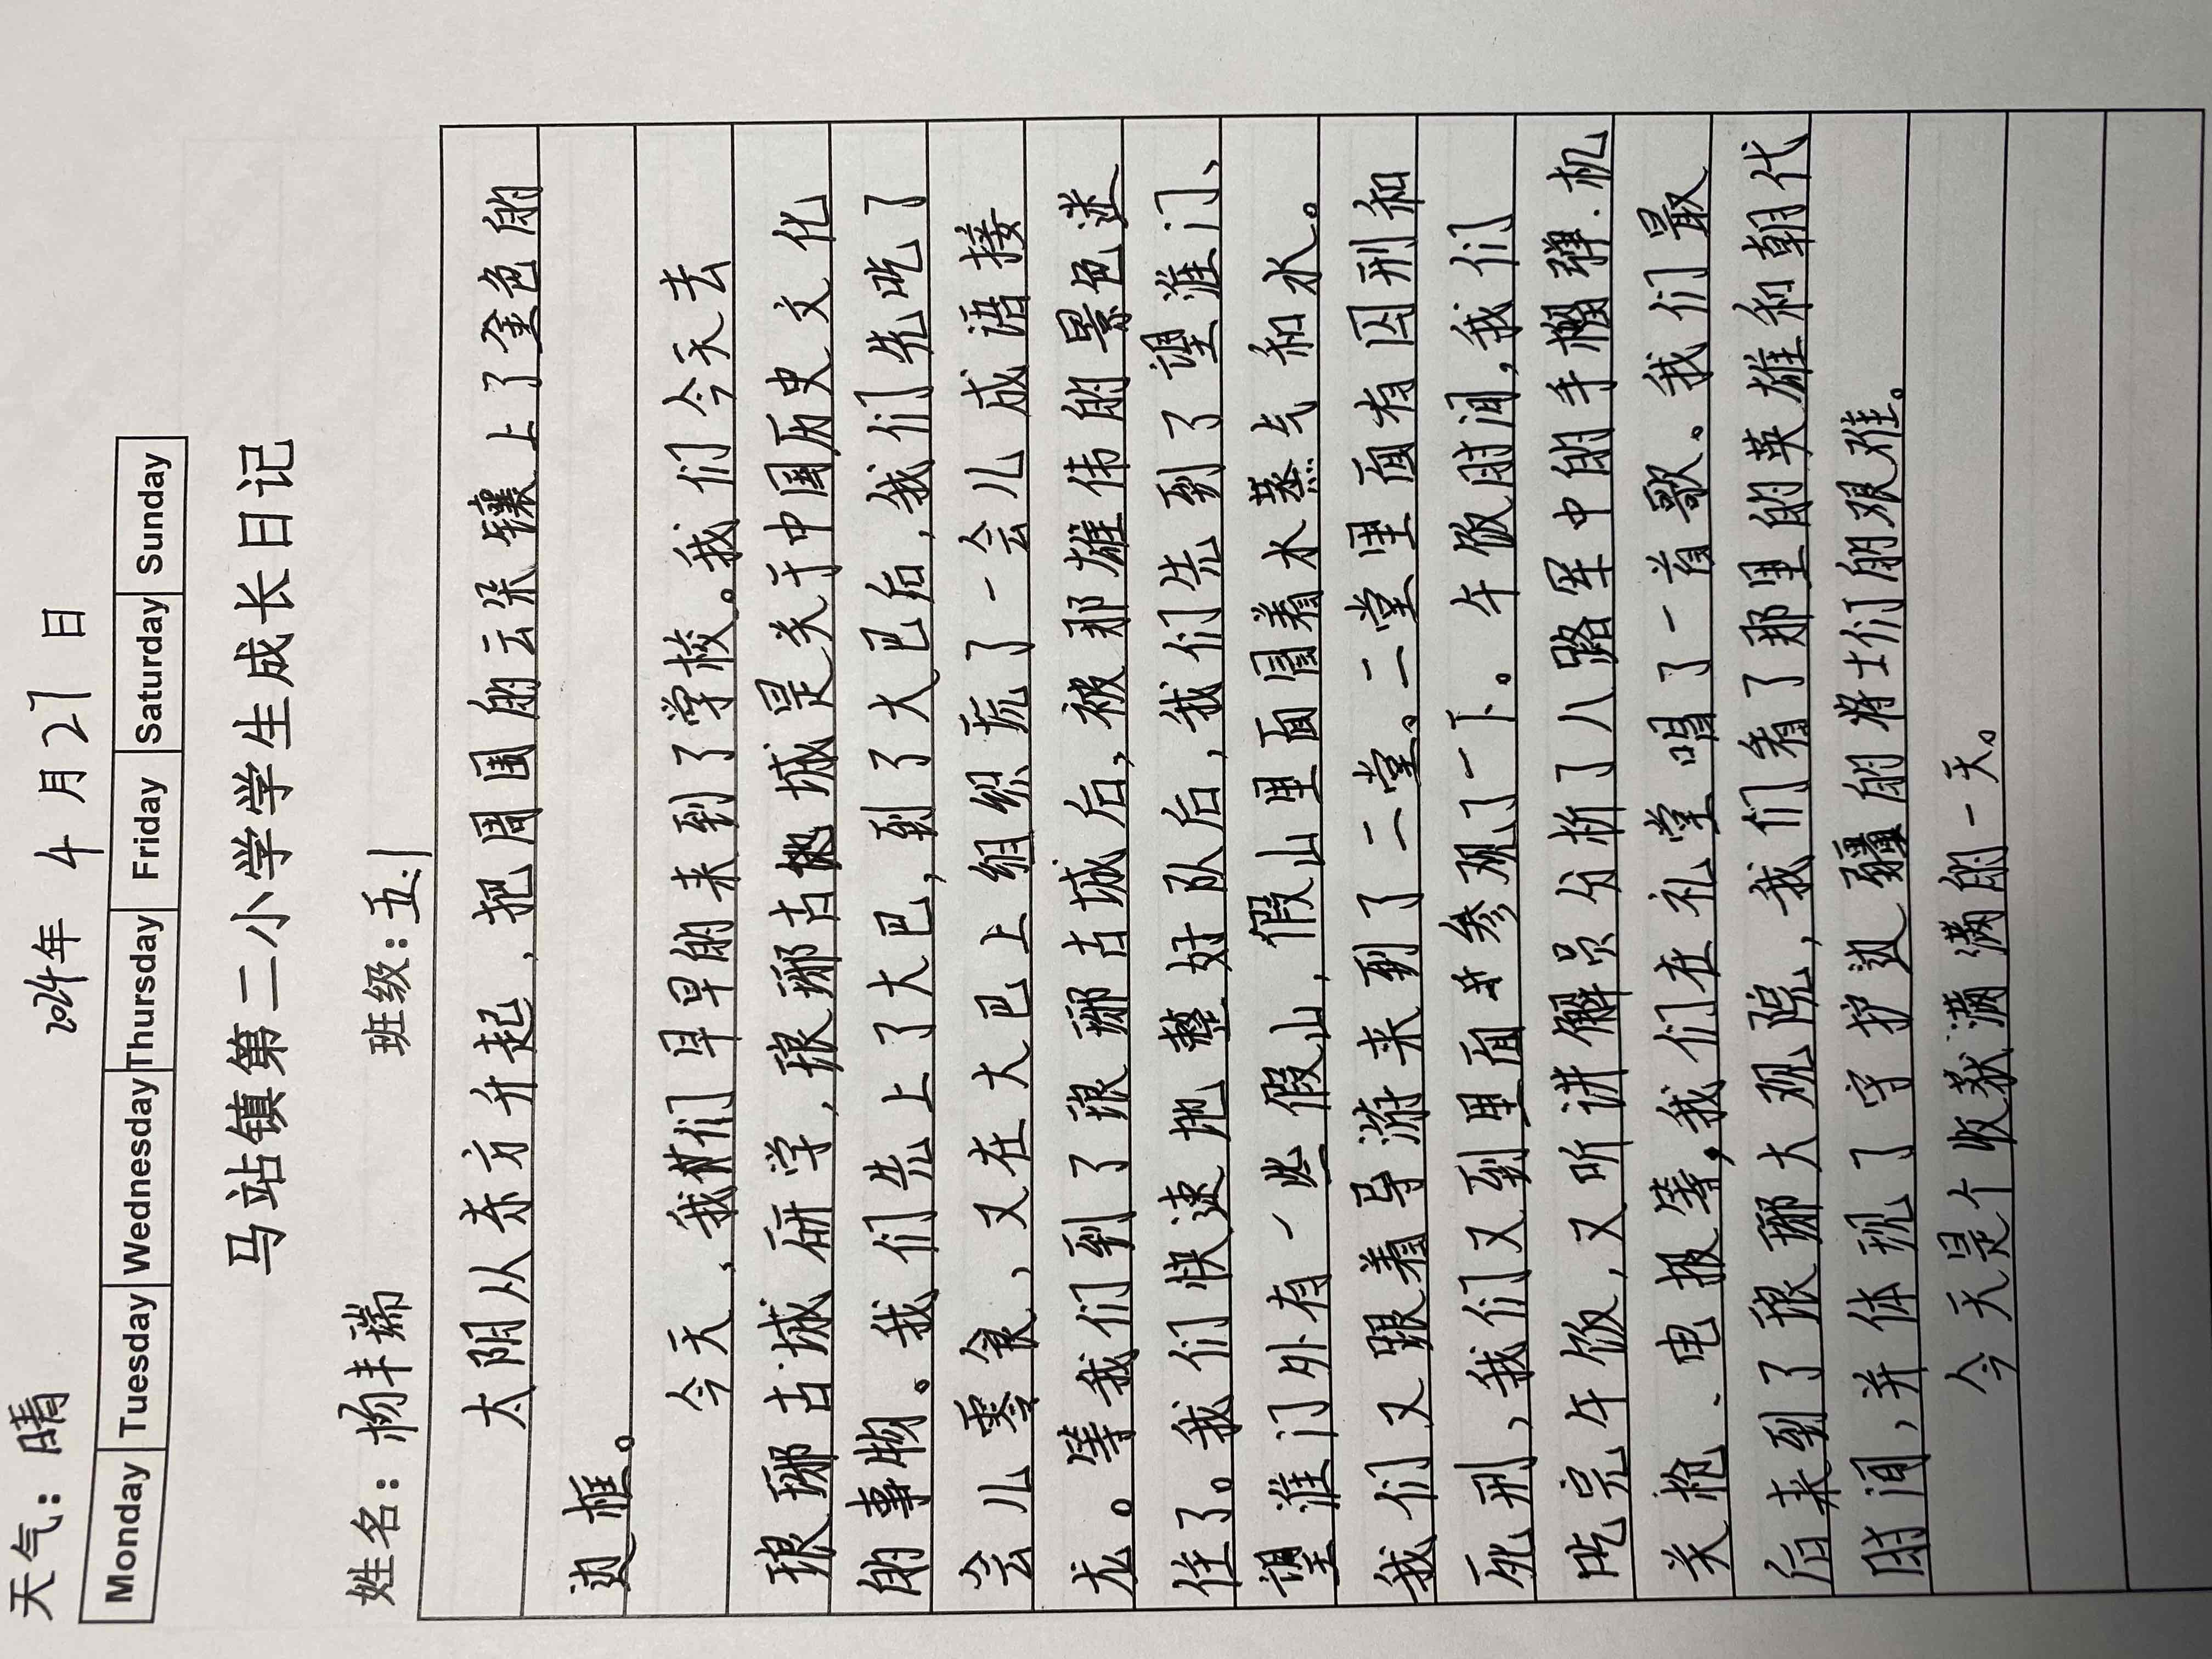 天气：晴 2024年 4月27日
Monday Tuesday Wednesday Thursday Friday Saturday Sunday
马站镇第二小学学生成长日记
姓名：杨丰瑞 班级：五.1
太阳从东方升起，把周围的云朵镶上了金色的
边框。
今天，我们早早的来到了学校。我们今天去
琅琊古城研学，琅琊古城是关于中国历史文化
的事物。我们先上了大巴，到了大巴后，我们先吃了
会儿零食，又在大巴上组织玩了一会儿成语接
龙。等我们到了琅琊古城后，被那雄伟的景色迷
住了。我们快速地整好队后，我们先到了望淮门、
望淮门外有一些假山，假山里面冒着水蒸气和水。
我们又跟着导游来到了二堂。二堂里面有囚刑和
死刑，我们又到里面参观了一下。午饭时间，我们
吃完午饭，又听讲解员分析了八路军中的手榴弹.机
关枪、电报等，我们在礼堂唱了一首歌。我们最
后来到了琅琊大观院，我们看了那里的英雄和朝代
时间，并体现了守护边疆的将士们的艰难。
今天是个收获满满的一天。